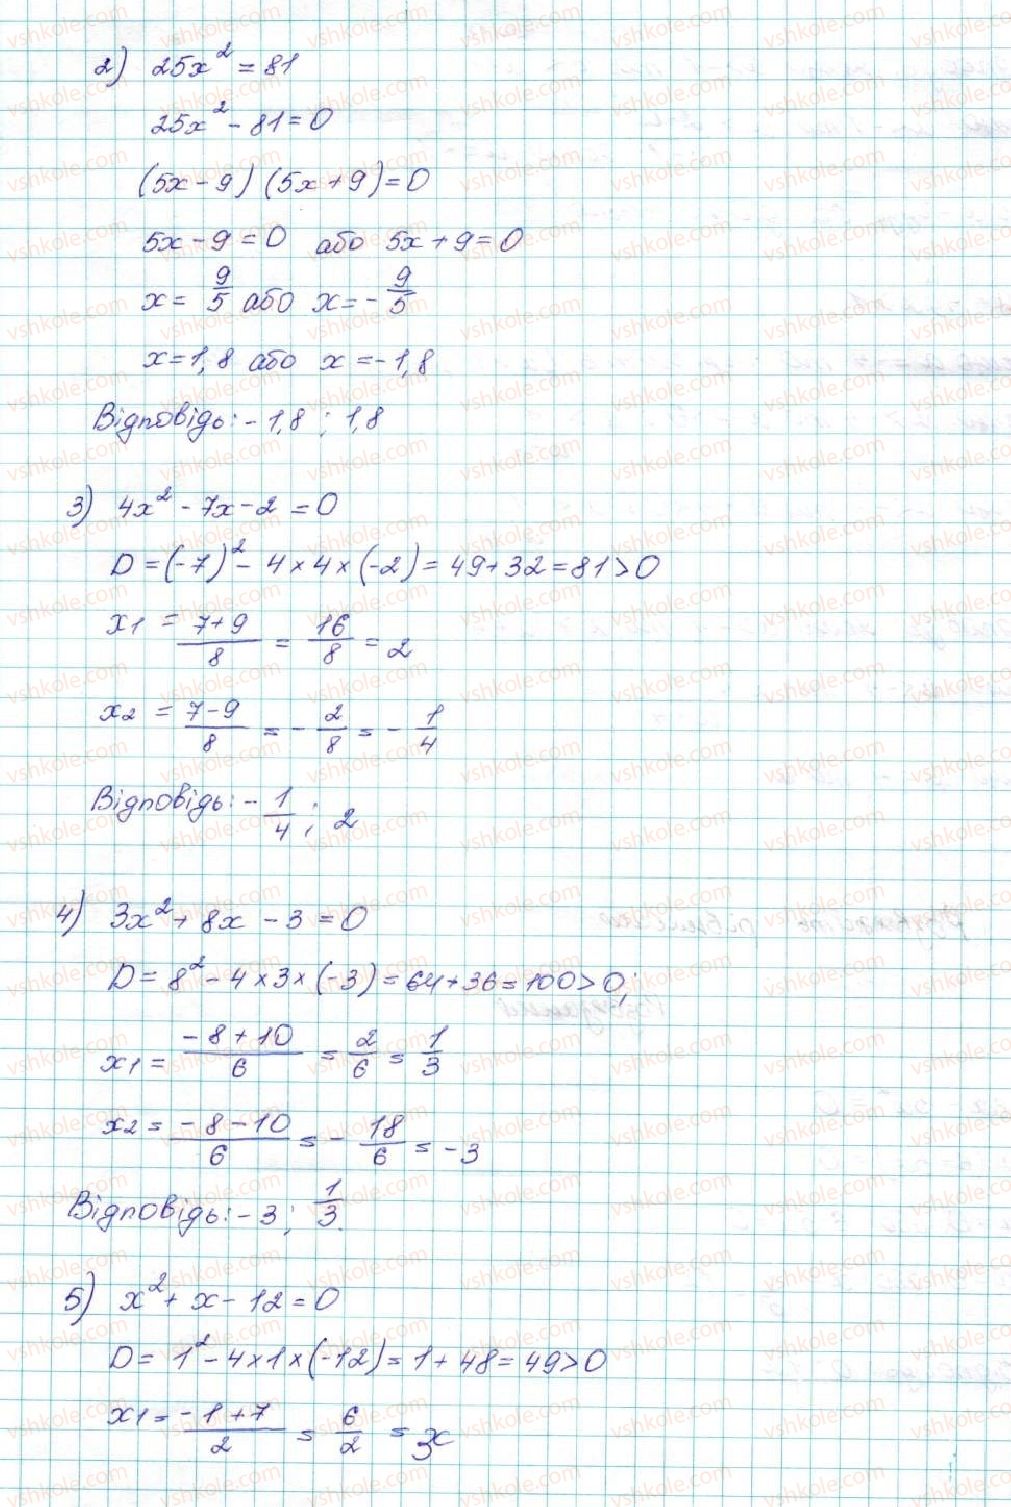 2) 25x² = 81
25x² - 81 = 0
(5x - 9) (5x + 9) = 0
5x - 9 = 0 або 5x + 9 = 0
x = 9/5 або x = - 9/5
x = 1,8 або x = -1,8
Відповідь: - 1,8 ; 1,8
3) 4x² - 7x - 2 = 0
D = (-7)² - 4 × 4 × (-2) = 49 + 32 = 81 > 0
x1 = 7+9/8 = 16/8 = 2
x2 = 7-9/8 = - 2/8 = - 1/4
Відповідь: - 1/4 ; 2
4) 3x² + 8x - 3 = 0
D = 8² - 4 × 3 × (-3) = 64 + 36 = 100 > 0;
x1 = -8+10/6 = 2/6 = 1/3
x2 = -8-10/6 = - 18/6 = -3
Відповідь: - 3; 1/3.
5) x² + x - 12 = 0
D = 1² - 4 × 1 × (-12) = 1 + 48 = 49 > 0
x1 = -1+7/2 = 6/2 = 3x